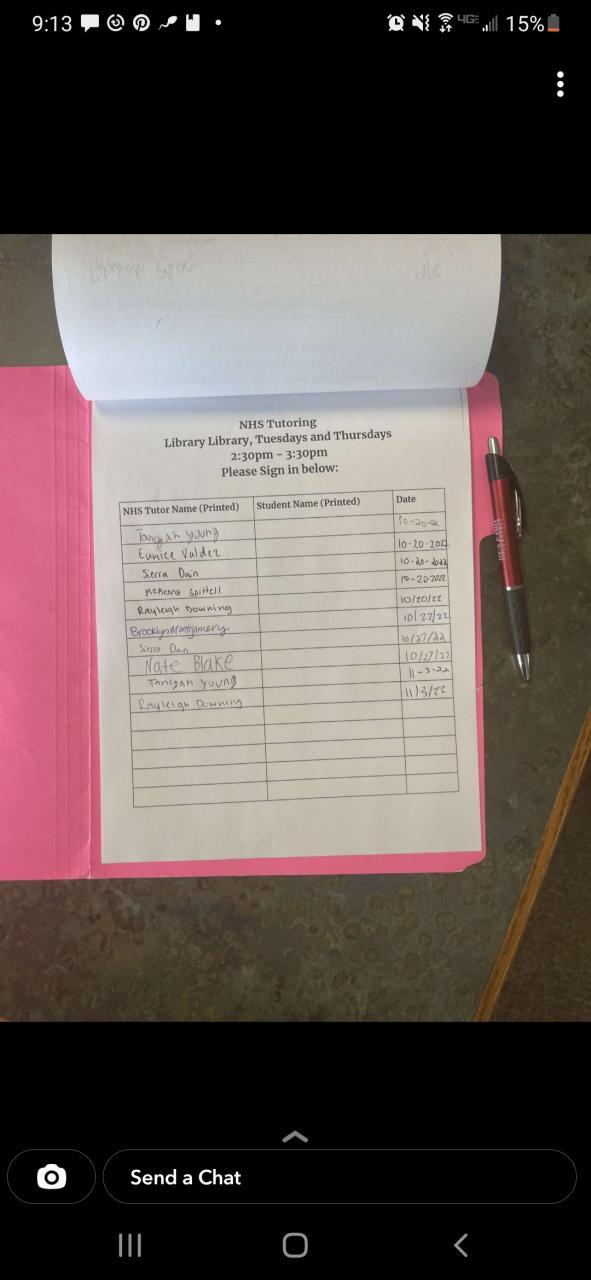 9:13
4GE 15%
NHS Tutoring
Library Library, Tuesdays and Thursdays
2:30pm - 3:30pm
Please Sign in below:
NHS Tutor Name (Printed) Student Name (Printed) Date
young 10-20-22
Eunice Valdez 10-20-2022
Sierra Dain 10-20-2022
McKenna Spittell 10-20-2022
Rayleigh Downing 10/20/22
Brooklyn Montgomery 10/27/22
Sierra Dain 10/27/22
Nate Blake 10/27/22
young 11-3-22
Rayleigh Downing 11/3/22
Send a Chat